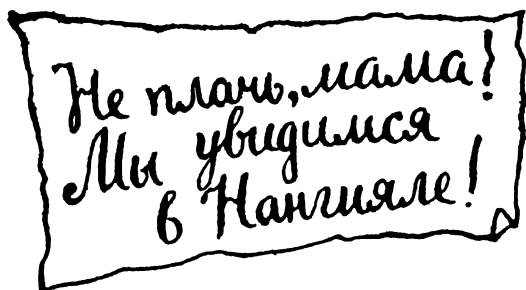 Не плачь, мама!
Мы увидимся
в Нангияле!